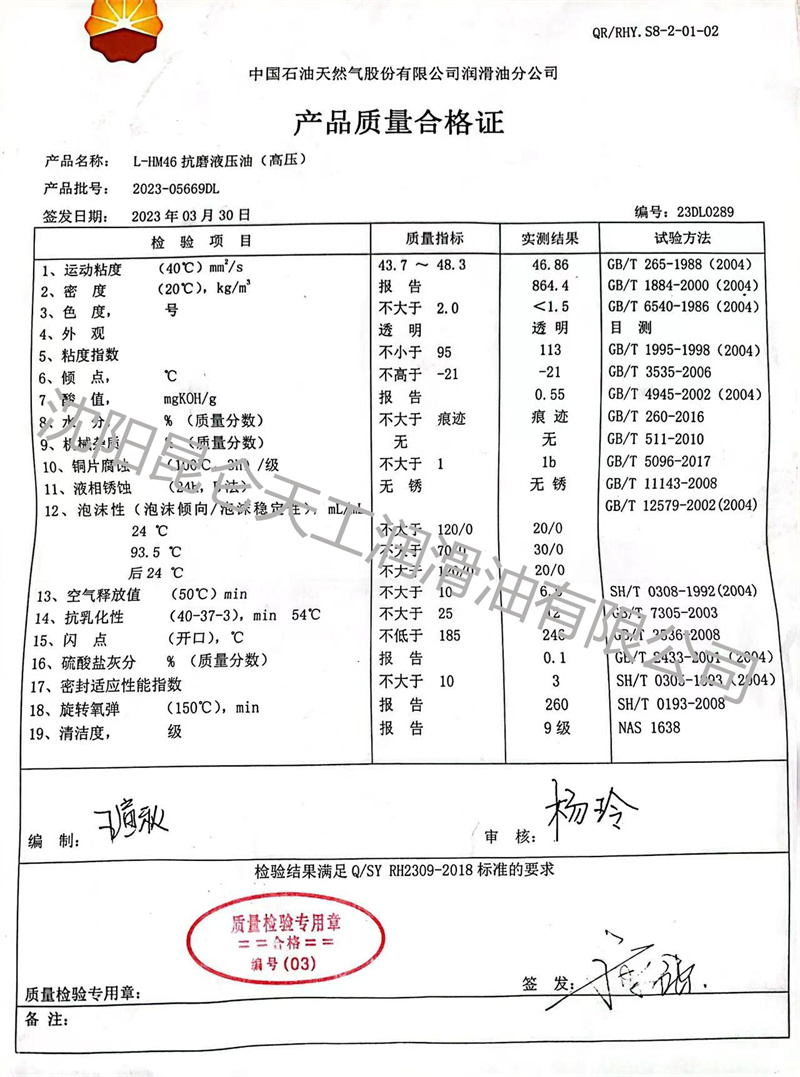 QR/RHY.S8-2-01-02
中国石油天然气股份有限公司润滑油分公司
产品质量合格证
产品名称： L-HM46 抗磨液压油（高压）
产品批号： 2023-05669DL
签发日期： 2023 年 03 月 30 日 编号：23DL0289
检 验 项 目 质量指标 实测结果 试验方法
1、运动粘度 （40℃）mm²/s 43.7 ～ 48.3 46.86 GB/T 265-1988（2004）
2、密 度 （20℃），kg/m³ 报 告 864.4 GB/T 1884-2000（2004）
3、色 度， 号 不大于 2.0 ＜1.5 GB/T 6540-1986（2004）
4、外 观 透 明 透 明 目 测
5、粘度指数 不小于 95 113 GB/T 1995-1998（2004）
6、倾 点， ℃ 不高于 -21 -21 GB/T 3535-2006
7、酸 值， mgKOH/g 报 告 0.55 GB/T 4945-2002（2004）
8、水 分， %（质量分数） 不大于 痕迹 痕 迹 GB/T 260-2016
9、机械杂质 %（质量分数） 无 无 GB/T 511-2010
10、铜片腐蚀 （100℃，3h）/级 不大于 1 1b GB/T 5096-2017
11、液相锈蚀 （24h， 法） 无 锈 无 锈 GB/T 11143-2008
12、泡沫性（泡沫倾向/泡沫稳定性），mL/mL GB/T 12579-2002(2004)
24 ℃ 不大于 120/0 20/0
93.5 ℃ 不大于 70/0 30/0
后 24 ℃ 不大于 120/0 20/0
13、空气释放值 （50℃）min 不大于 10 SH/T 0308-1992(2004)
14、抗乳化性 （40-37-3），min 54℃ 不大于 25 12 GB/T 7305-2003
15、闪 点 （开口），℃ 不低于 185 246 GB/T 3536-2008
16、硫酸盐灰分 %（质量分数） 报 告 0.1 GB/T 2433-2001（2004）
17、密封适应性能指数 不大于 10 3 SH/T 0305-1993（2004）
18、旋转氧弹 （150℃），min 报 告 260 SH/T 0193-2008
19、清洁度， 级 报 告 9 级 NAS 1638
沈阳昆仑天工润滑油有限公司
编 制：
审 核： 杨玲
检验结果满足 Q/SY RH2309-2018 标准的要求
质量检验专用章
＝＝合格＝＝
编号(03)
签 发：
质量检验专用章：
备 注：